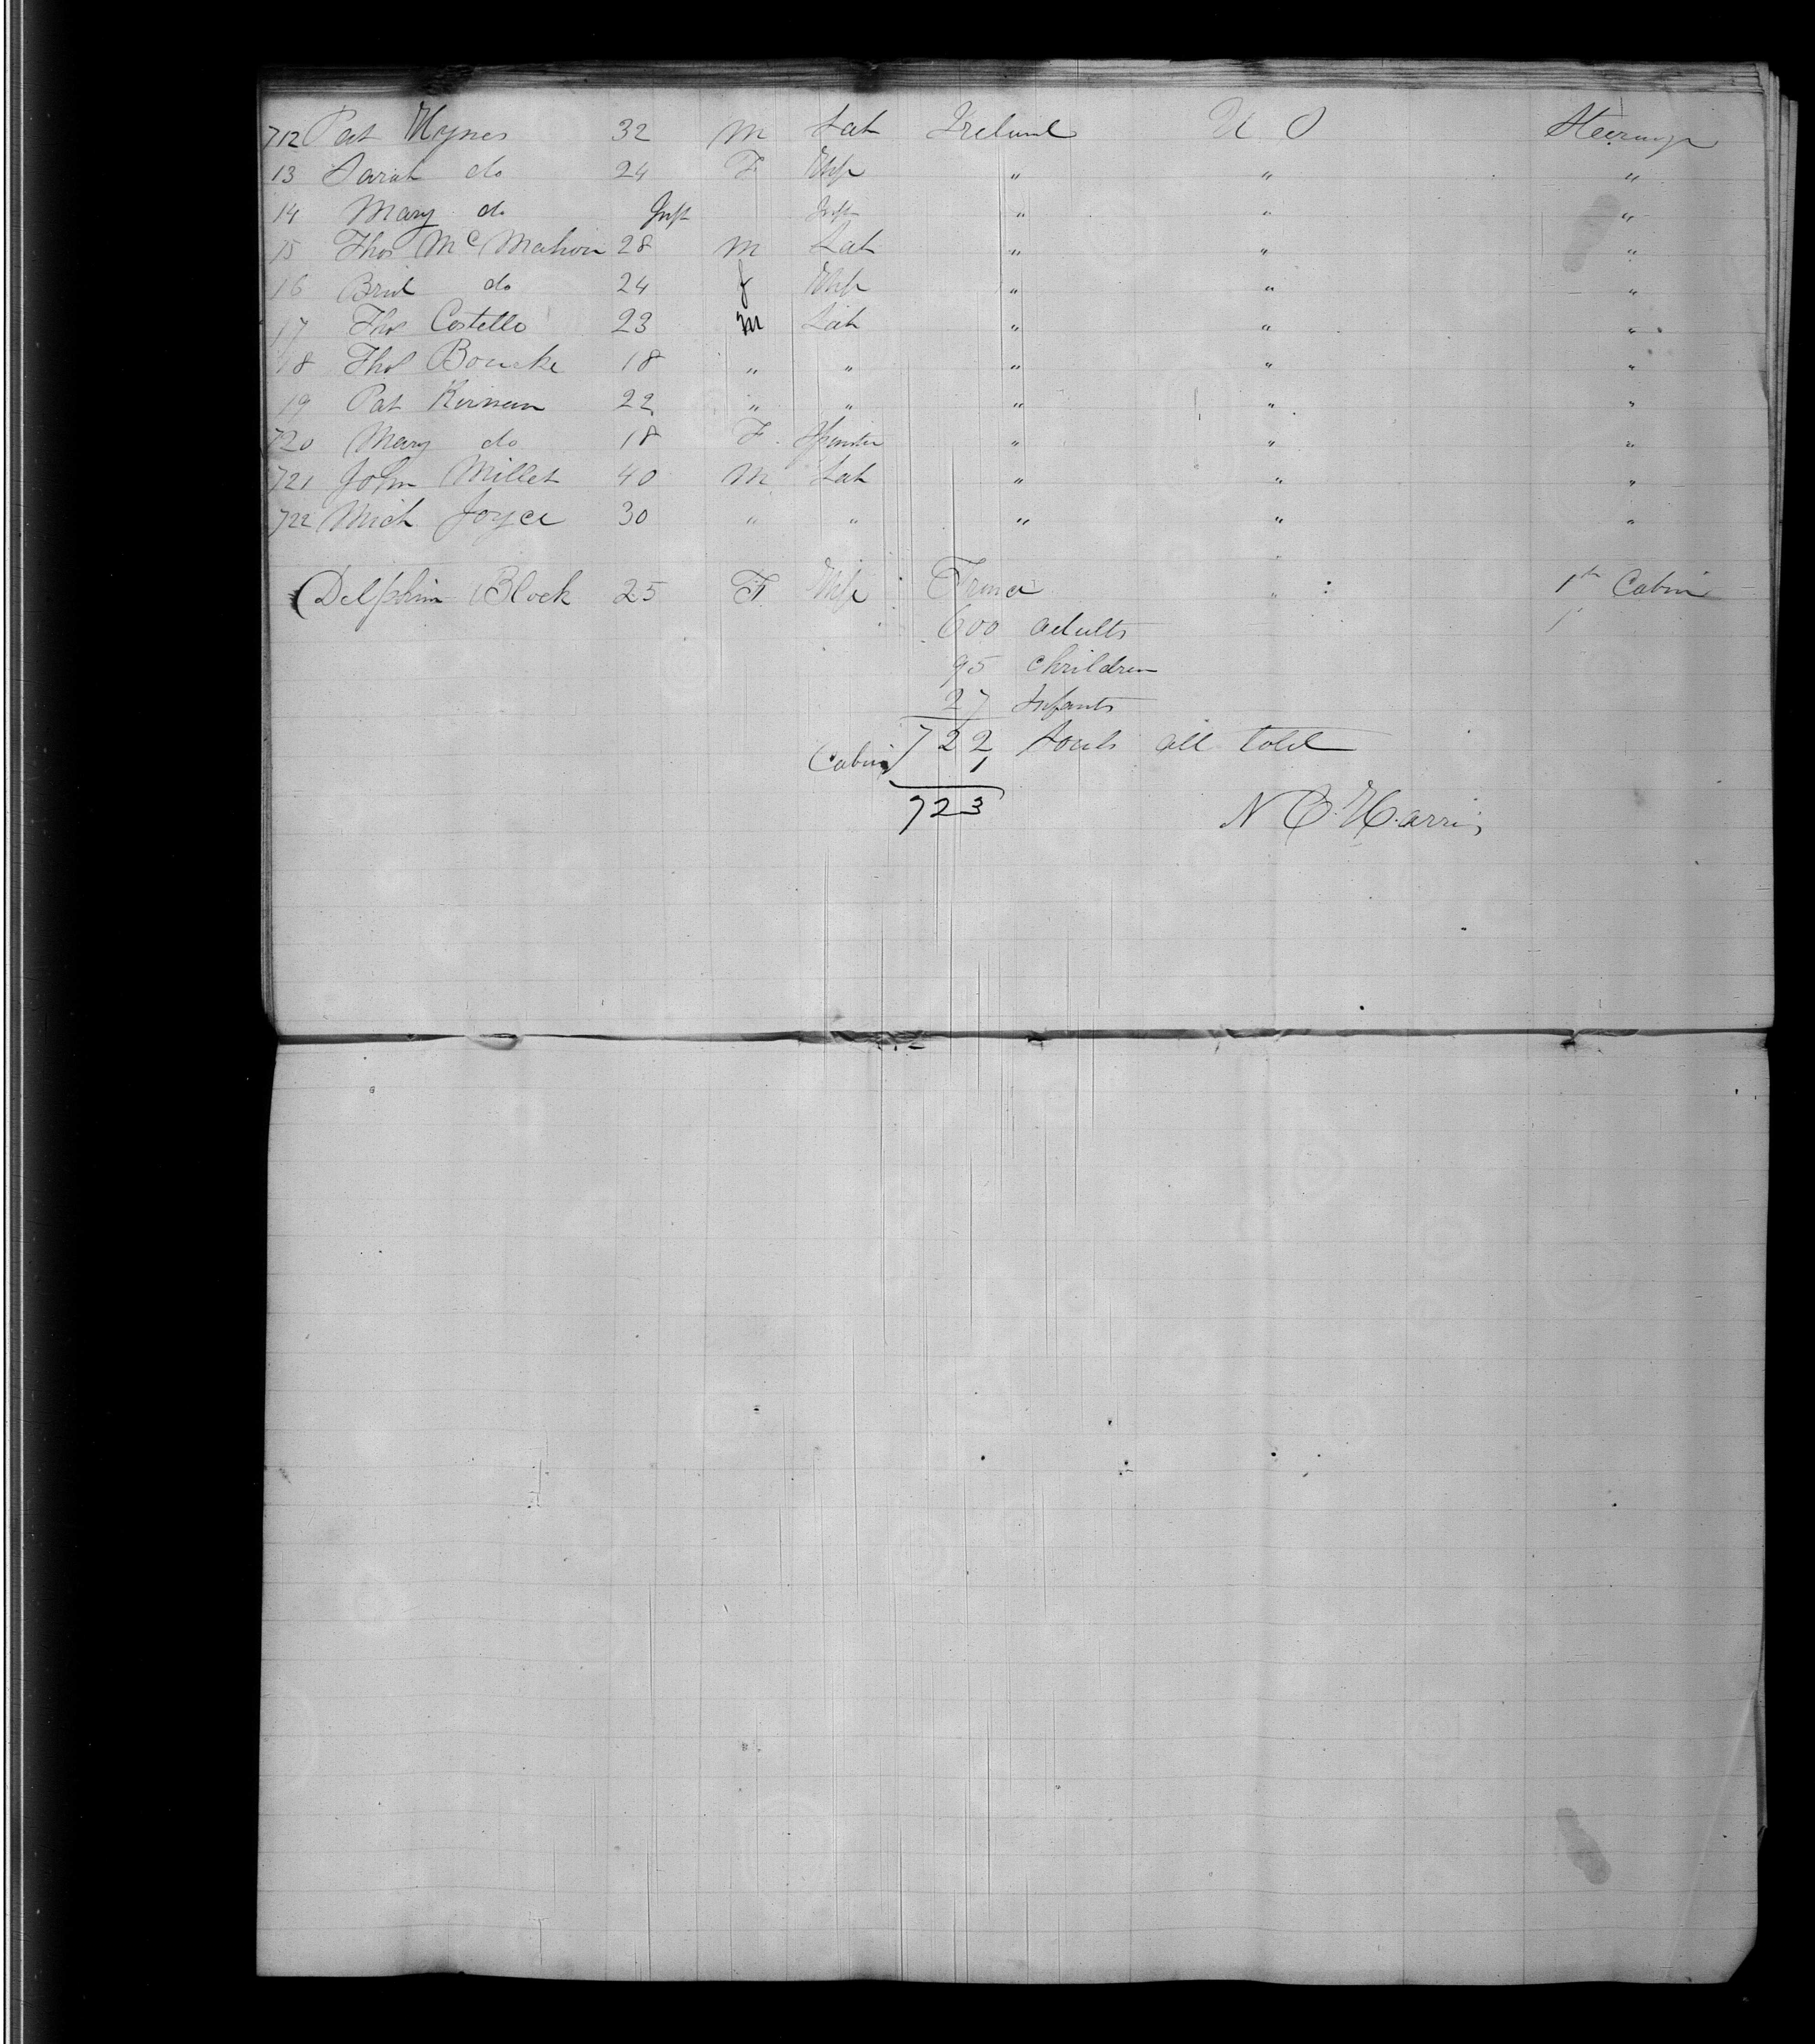 712 Pat Hynes 32 M Lab Ireland U S Steerage
13 Sarah do 24 F Wife " " "
14 Mary do Inft Inft " " "
15 Thos McMahon 28 M Lab " " "
16 Brid do 24 f Wife " " "
17 Thos Costello 23 M Lab " " "
18 Thos Bourke 18 " " " " "
19 Pat Kirwan 22 " " " " "
720 Mary do 18 F. Spinster " " "
721 John Millet 40 M Lab " " "
722 Mich Joyce 30 " " " " "
Delphin Block 25 F. Wife France " 1st Cabin
600 adults
95 children
27 Infants
722 Souls all told
Cabin 1
723
N C. Harris